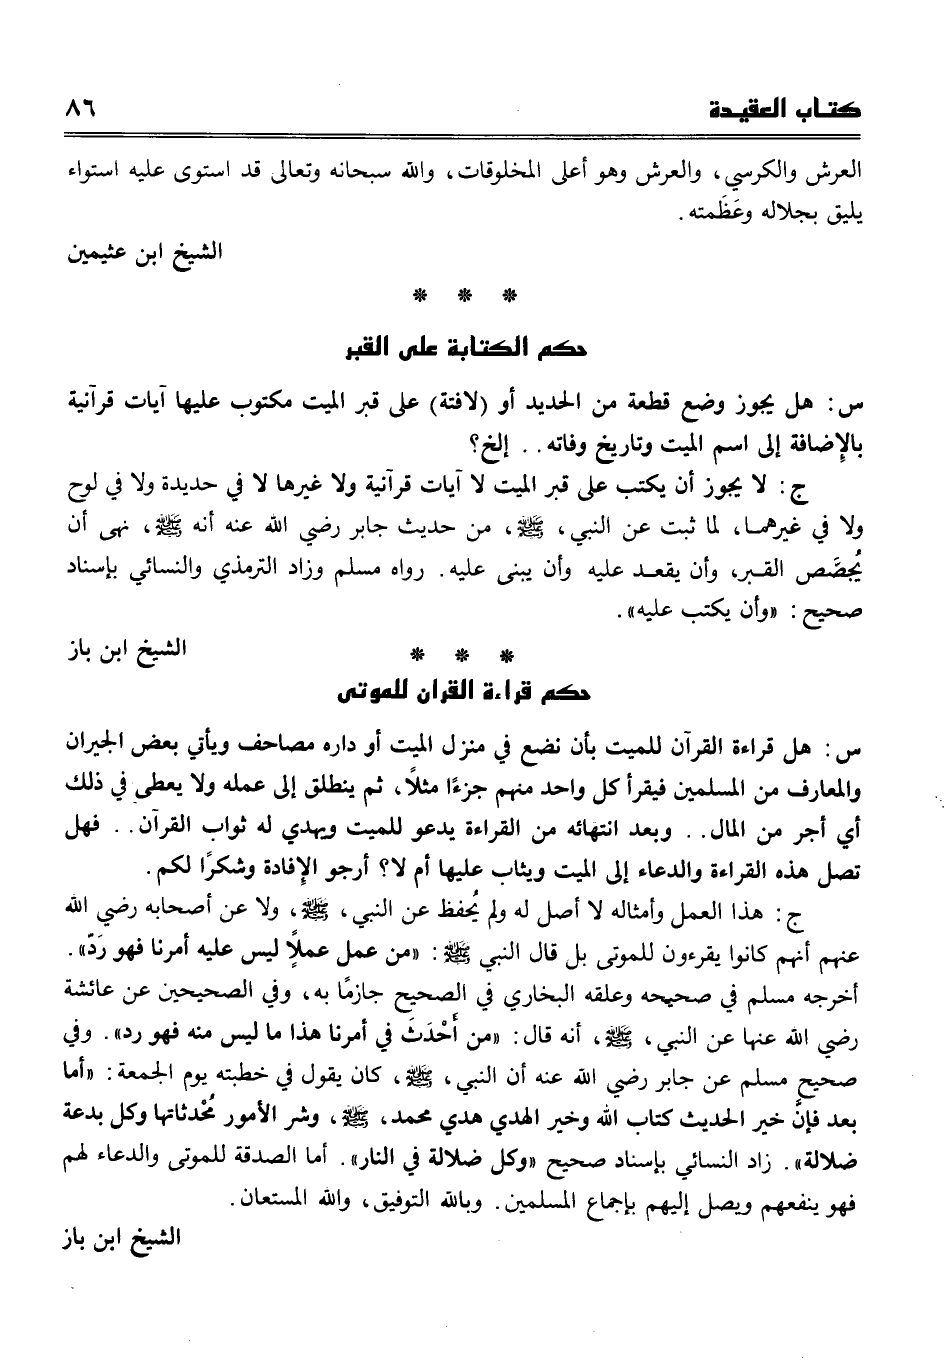 كتاب العقيدة ٨٦
العرش والكرسي، والعرش وهو أعلى المخلوقات، والله سبحانه وتعالى قد استوى عليه استواء
يليق بجلاله وعَظَمته.
الشيخ ابن عثيمين
* * *
حكم الكتابة على القبر
س: هل يجوز وضع قطعة من الحديد أو (لافتة) على قبر الميت مكتوب عليها آيات قرآنية
بالإضافة إلى اسم الميت وتاريخ وفاته.. إلخ؟
ج: لا يجوز أن يكتب على قبر الميت لا آيات قرآنية ولا غيرها لا في حديدة ولا في لوح
ولا في غيرهما، لما ثبت عن النبي، ﷺ، من حديث جابر رضي الله عنه أنه ﷺ، نهى أن
يُجصَّص القبر، وأن يقعد عليه وأن يبنى عليه. رواه مسلم وزاد الترمذي والنسائي بإسناد
صحيح: «وأن يكتب عليه».
الشيخ ابن باز
* * *
حكم قراءة القرآن للموتى
س: هل قراءة القرآن للميت بأن نضع في منزل الميت أو داره مصاحف ويأتي بعض الجيران
والمعارف من المسلمين فيقرأ كل واحد منهم جزءًا مثلًا، ثم ينطلق إلى عمله ولا يعطى في ذلك
أي أجر من المال.. وبعد انتهائه من القراءة يدعو للميت ويهدي له ثواب القرآن.. فهل
تصل هذه القراءة والدعاء إلى الميت ويثاب عليها أم لا؟ أرجو الإفادة وشكرًا لكم.
ج: هذا العمل وأمثاله لا أصل له ولم يُحفظ عن النبي، ﷺ، ولا عن أصحابه رضي الله
عنهم أنهم كانوا يقرءون للموتى بل قال النبي ﷺ: «من عمل عملًا ليس عليه أمرنا فهو رَدّ».
أخرجه مسلم في صحيحه وعلقه البخاري في الصحيح جازمًا به، وفي الصحيحين عن عائشة
رضي الله عنها عن النبي، ﷺ، أنه قال: «من أَحْدَثَ في أمرنا هذا ما ليس منه فهو رد». وفي
صحيح مسلم عن جابر رضي الله عنه أن النبي، ﷺ، كان يقول في خطبته يوم الجمعة: «أما
بعد فإنَّ خير الحديث كتاب الله وخير الهدي هدي محمد، ﷺ، وشر الأمور مُحْدثاتها وكل بدعة
ضلالة». زاد النسائي بإسناد صحيح «وكل ضلالة في النار». أما الصدقة للموتى والدعاء لهم
فهو ينفعهم ويصل إليهم بإجماع المسلمين. وبالله التوفيق، والله المستعان.
الشيخ ابن باز